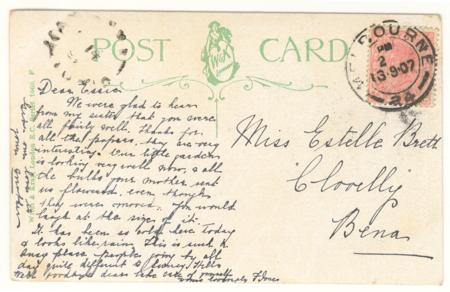 POST CARD
W&K
MELBOURNE
PM
2
13.9.07
2A
Dear Essie
We were glad to hear
from my sister that you were
all fairly well. Thanks for
all the papers. They are very
interesting. Our little garden
is looking very well now, & all
the bulbs your mother sent
us flowered even though
they were moved. You would
laugh at the size of it.
It has been so cold here today
& looks like rain. This is such a
busy place people going by all
day quite different to Hills
Well goodbye dear take care of yourself
Miss Estelle Brett
Clovelly
Bena
Give our love to
your mother